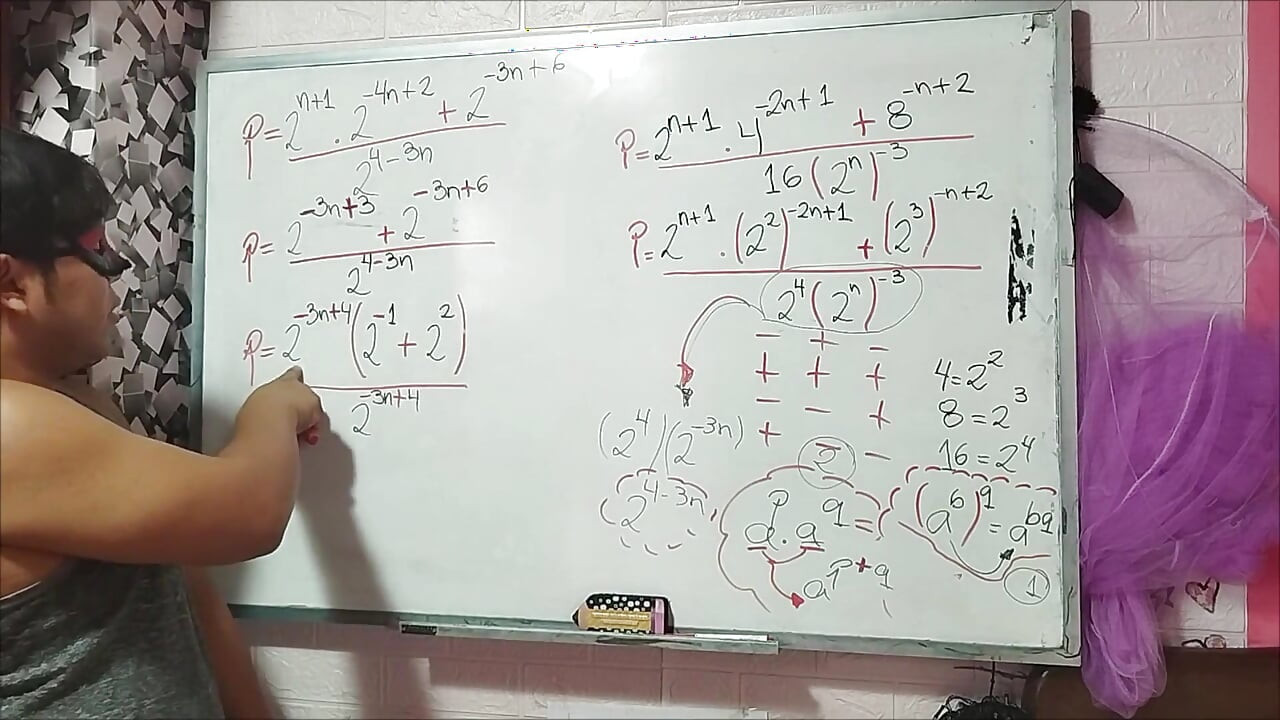 P = 2^{n+1} . 2^{-4n+2} + 2^{-3n+6}
2^{4-3n}
P = 2^{-3n+3} + 2^{-3n+6}
2^{4-3n}
P = 2^{-3n+4} (2^{-1} + 2^{2})
2^{-3n+4}
P = 2^{n+1} . 4^{-2n+1} + 8^{-n+2}
16 (2^{n})^{-3}
P = 2^{n+1} . (2^{2})^{-2n+1} + (2^{3})^{-n+2}
2^{4} (2^{n})^{-3}
− + −
+ + +
− − +
+ − −
(2^{4})(2^{-3n})
2^{4-3n}
4 = 2^{2}
8 = 2^{3}
16 = 2^{4}
2
a^{p} . a^{q} =
a^{p+q}
(a^{b})^{q} = a^{bq}
1